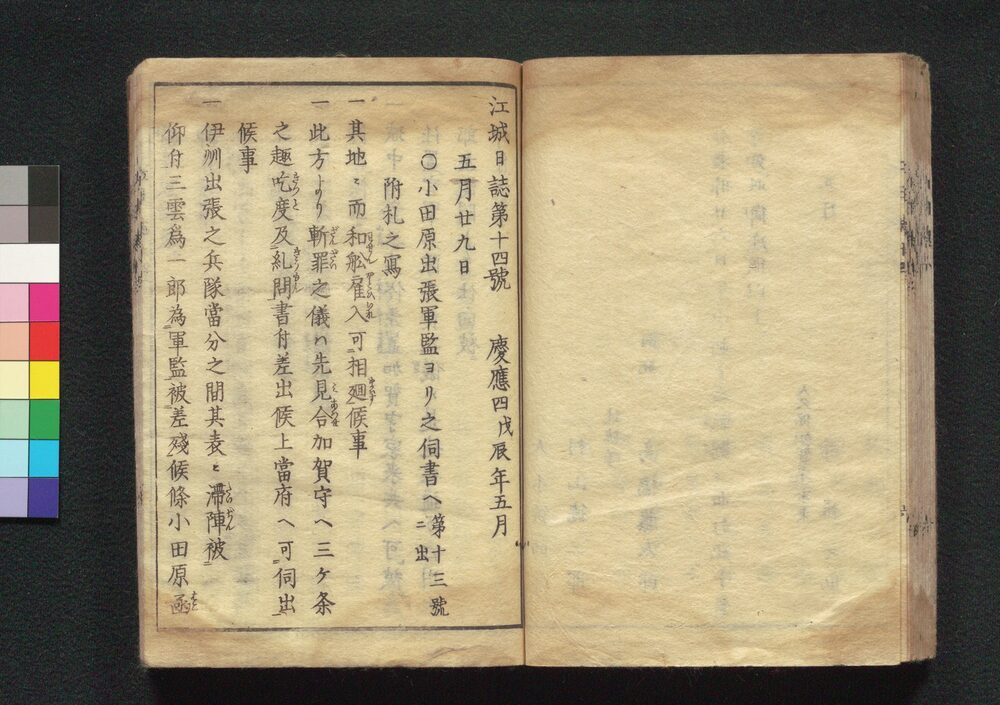 江城日誌第十四號　慶應四戊辰年五月
五月廿九日
〇小田原出張軍監ヨリ之伺書へ第十三號ニ出
附札之寫
一其地ニ而和舩雇入可相廻候事
一此方より斬罪之儀ハ先見合加賀守へ三ケ条
之趣吃度及糺問書付差出候上當府へ可伺出
候事
一伊州出張之兵隊當分之間其表ヒ滞陣被
仰付三雲為一郎為軍監被差殘候條小田原函